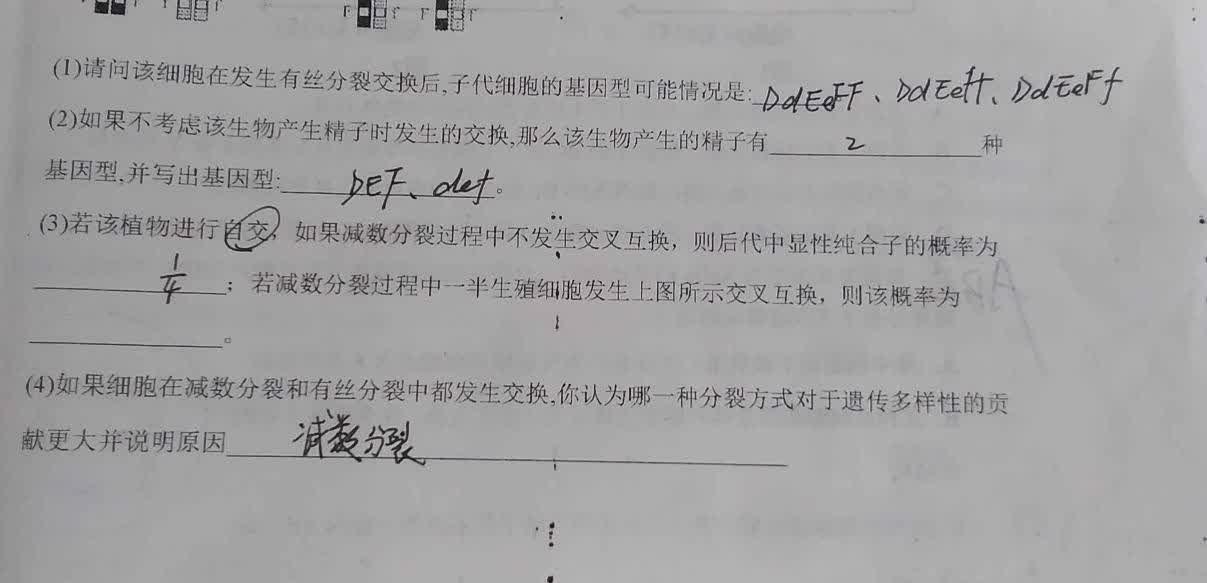 F f F f
(1)请问该细胞在发生有丝分裂交换后,子代细胞的基因型可能情况是:DdEeFF、DdEeff、DdEeFf
(2)如果不考虑该生物产生精子时发生的交换,那么该生物产生的精子有 2 种
基因型,并写出基因型: DEF、def 。
(3)若该植物进行自交，如果减数分裂过程中不发生交叉互换，则后代中显性纯合子的概率为
1/4 ；若减数分裂过程中一半生殖细胞发生上图所示交叉互换，则该概率为
。
(4)如果细胞在减数分裂和有丝分裂中都发生交换,你认为哪一种分裂方式对于遗传多样性的贡
献更大并说明原因 减数分裂